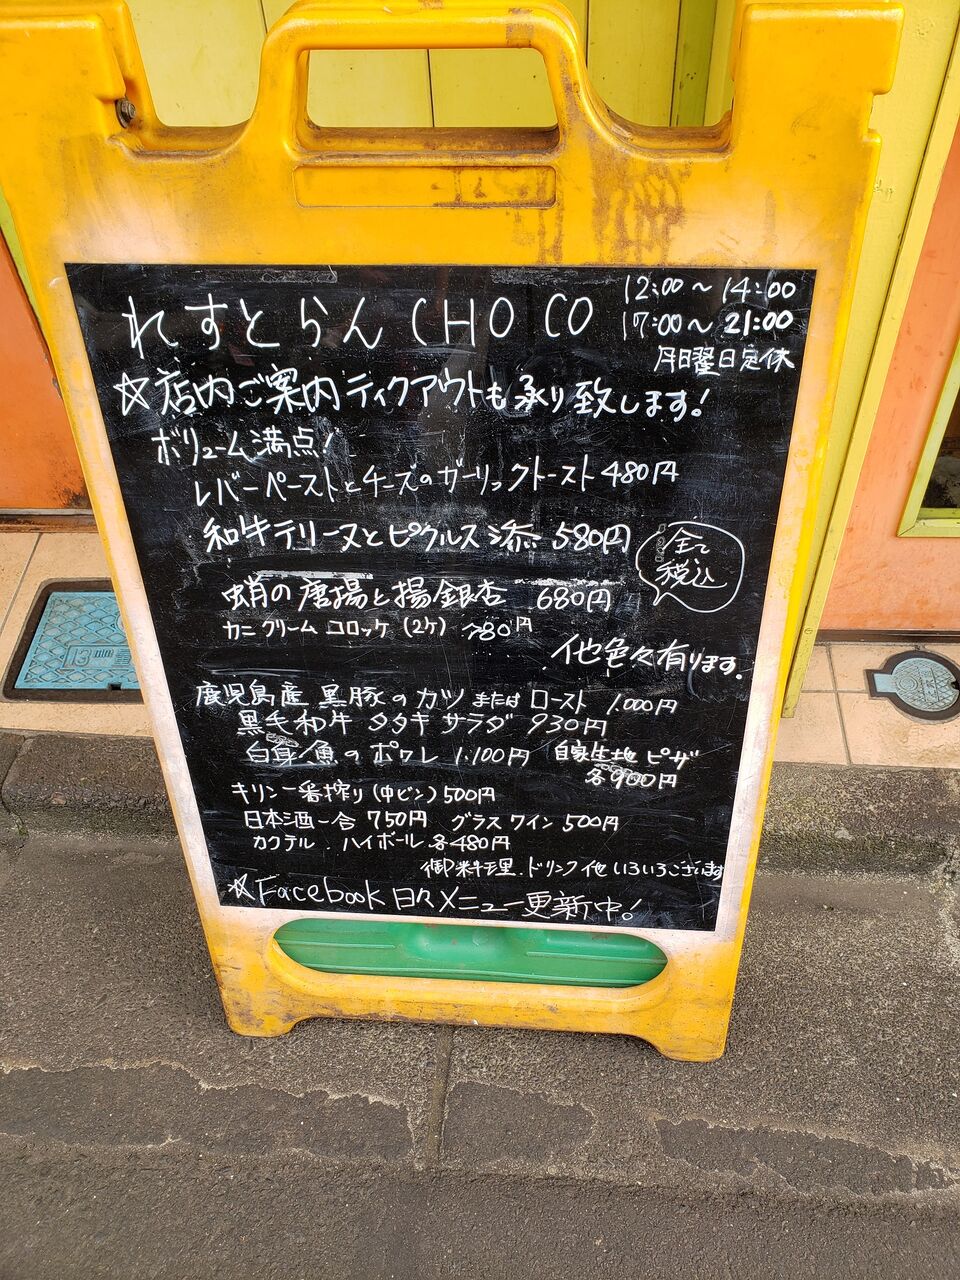 れすとらん CHOCO
12:00〜14:00
17:00〜21:00
月曜日定休
☆店内ご案内ティクアウトも承り致します!
ボリューム満点!
レバーペーストとチーズのガーリックトースト 480円
和牛テリーヌとピクルス添 580円
全て
税込
蛸の唐揚と揚銀杏 680円
カニクリームコロッケ(2ケ) 円
他色々有ります.
鹿児島産 黒豚のカツ または ロースト 1.000円
黒毛和牛 タタキ サラダ 930円
白身魚のポワレ 1.100円
自家生地 ピザ
各900円
キリン一番搾り(中ビン) 500円
日本酒一合 750円 グラスワイン 500円
カクテル.ハイボール 各480円
御料理.ドリンク他いろいろございます
☆Facebook 日々メニュー更新中!